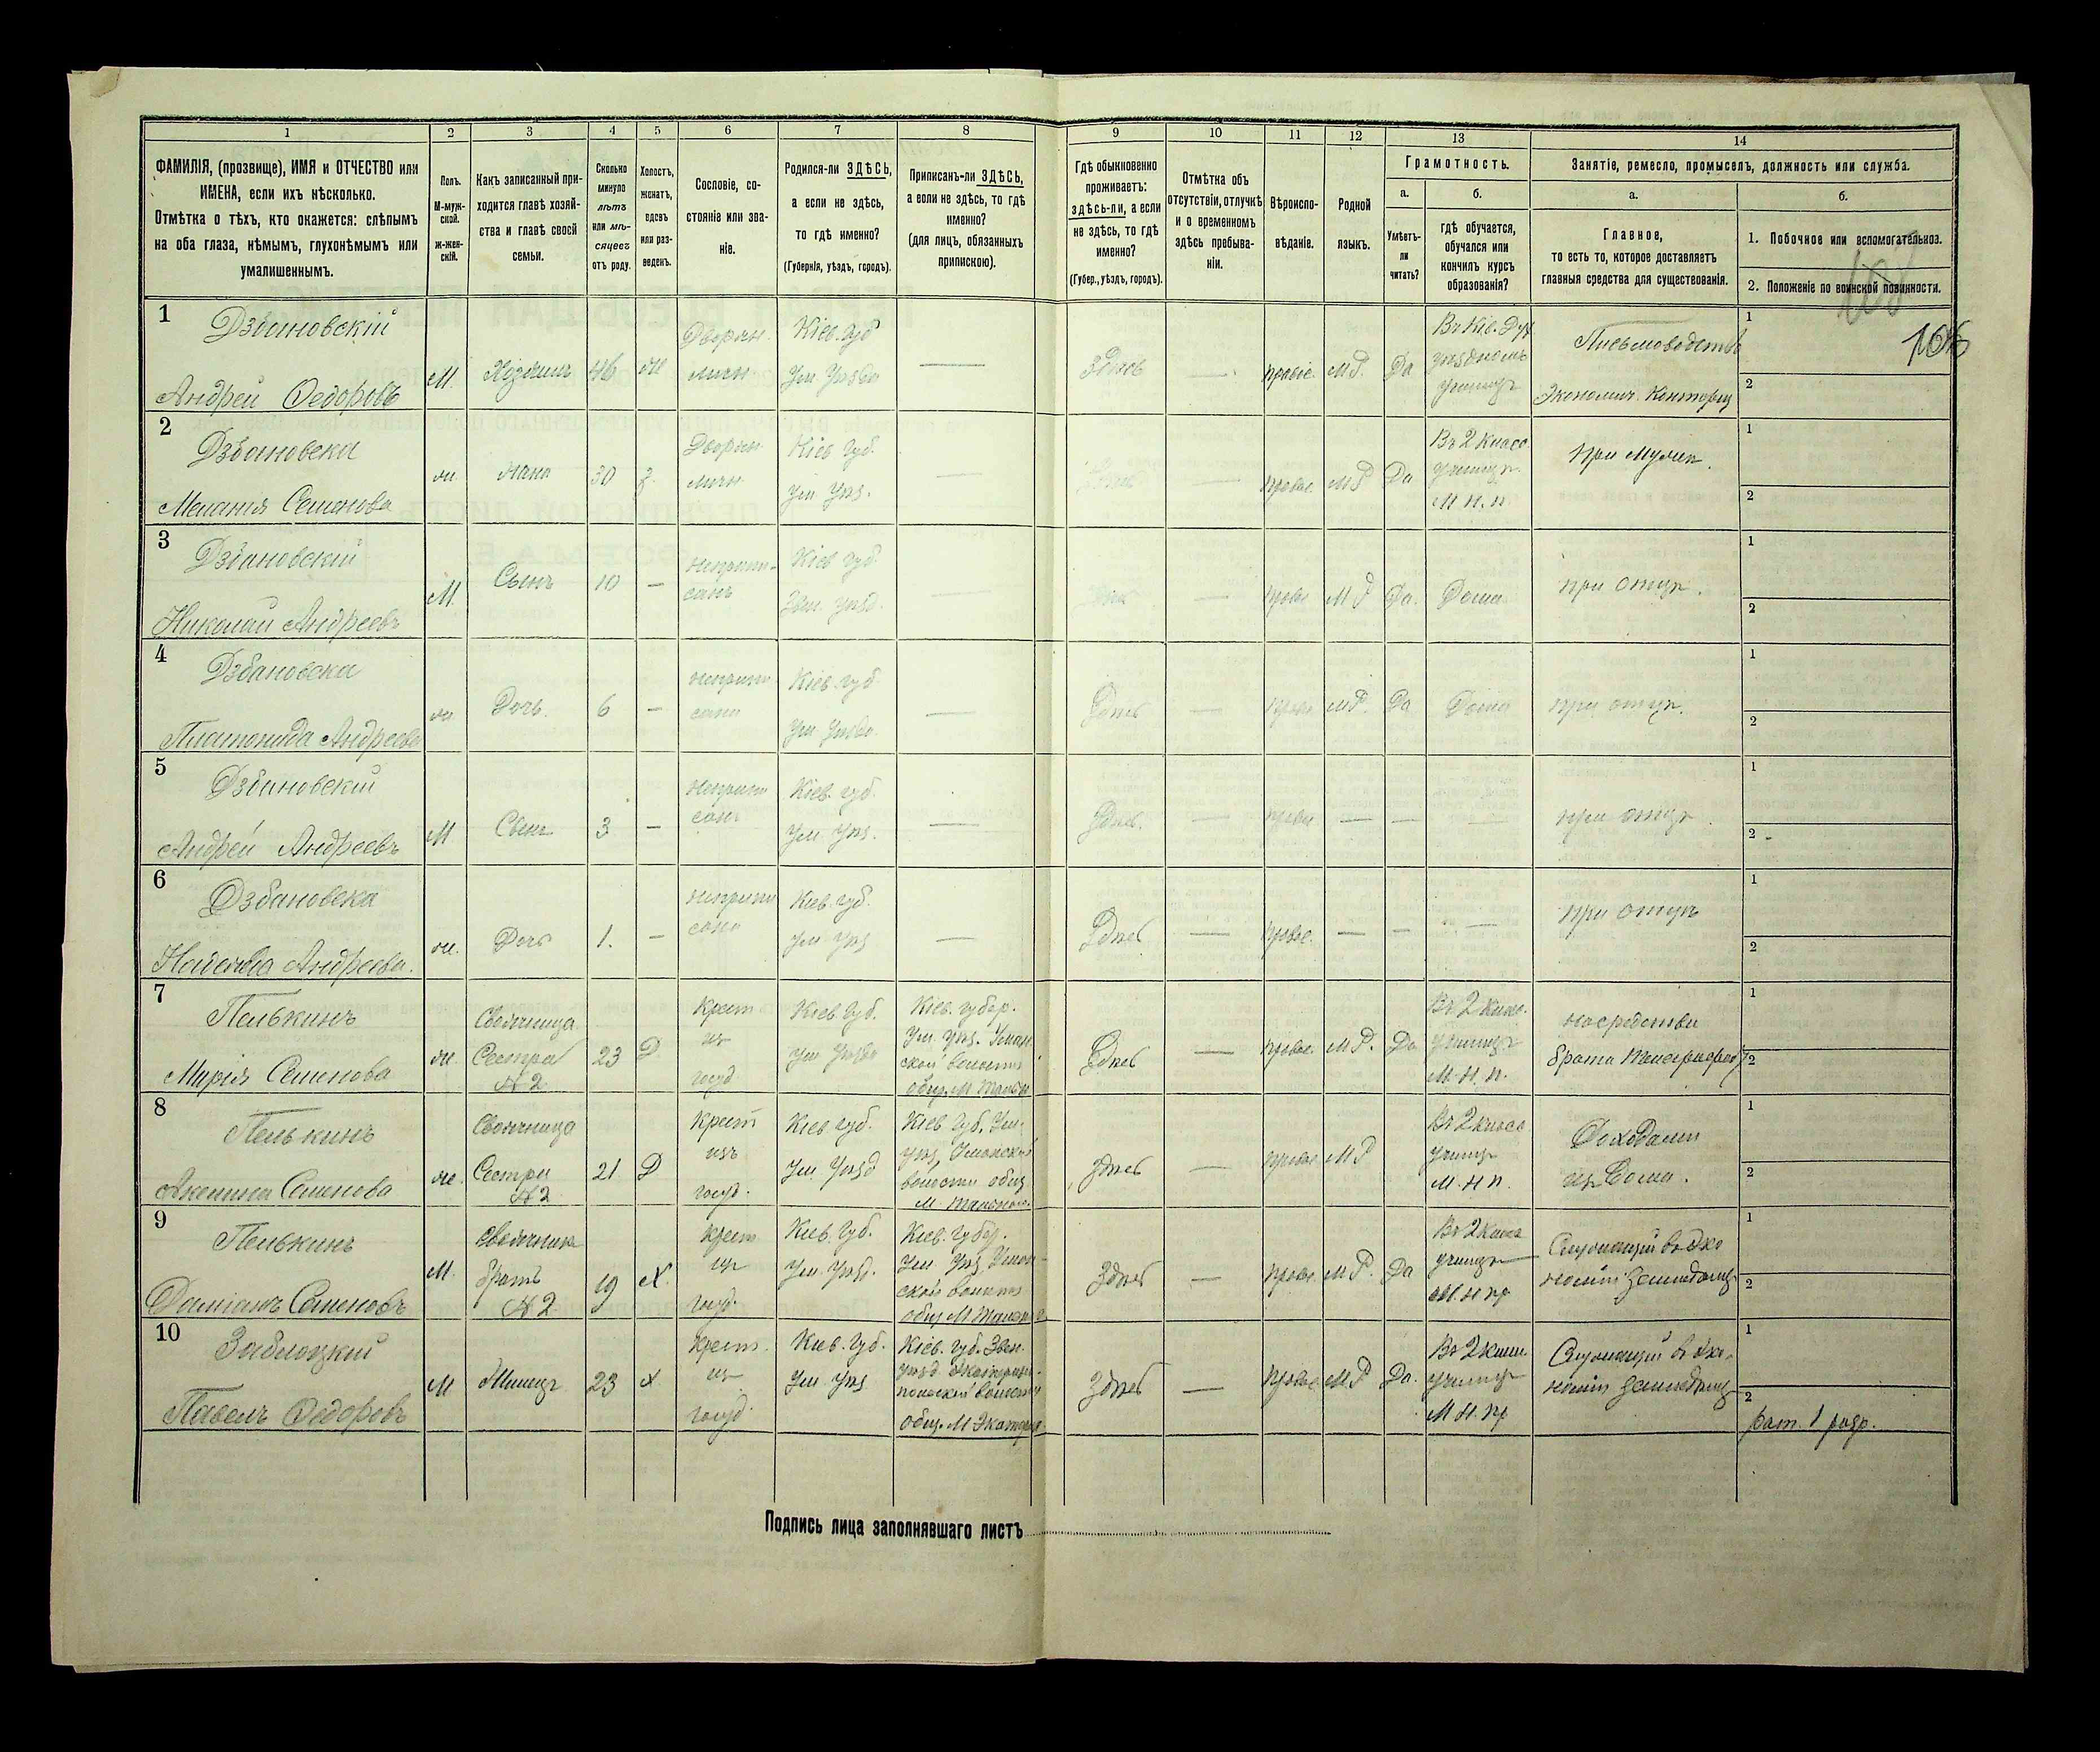 1
2
3
4
5
6
7
8
9
10
11
12
13
14
ФАМИЛІЯ, (прозвище), ИМЯ и ОТЧЕСТВО или
ИМЕНА, если ихъ нѣсколько.
Отмѣтка о тѣхъ, кто окажется: слѣпымъ
на оба глаза, нѣмымъ, глухонѣмымъ или
умалишеннымъ.
Полъ.
М-муж-
ской.
Ж-жен-
скій.
Какъ записанный при-
ходится главѣ хозяй-
ства и главѣ своей
семьи.
Сколько
минуло
лѣтъ
или мѣ-
сяцевъ
отъ роду.
Холостъ,
женатъ,
вдовъ
или раз-
веденъ.
Сословіе, со-
стояніе или зва-
ніе.
Родился-ли ЗДѢСЬ,
а если не здѣсь,
то гдѣ именно?
(Губернія, уѣздъ, городъ).
Приписанъ-ли ЗДѢСЬ,
а если не здѣсь, то гдѣ
именно?
(для лицъ, обязанныхъ
припискою).
Гдѣ обыкновенно
проживаетъ:
здѣсь-ли, а если
не здѣсь, то гдѣ
именно?
(Губер., уѣздъ, городъ).
Отмѣтка объ
отсутствіи, отлучкѣ
и о временномъ
здѣсь пребыва-
ніи.
Вѣроиспо-
вѣданіе.
Родной
языкъ.
Грамотность.
а.
Умѣетъ-
ли
читать?
б.
гдѣ обучается,
обучался или
кончилъ курсъ
образованія?
Занятіе, ремесло, промыселъ, должность или служба.
а.
Главное,
то есть то, которое доставляетъ
главныя средства для существованія.
б.
1. Побочное или вспомогательное.
2. Положеніе по воинской повинности.
106
1
Дзбановскій
Андрей Ѳедоровъ
М. Хозяинъ 46 ж
Дворян.
личн.
Кіев. Губ
Ум Уѣзда
—
здѣсь — правос. М Р. Да
Въ Кіе. Дух.
уѣздномъ
училищѣ
Письмоводств
Экономич. Конторы
1
2
2
Дзбановска
Меланія Семенова
ж. Жена 30 з.
Дворян.
личн.
Кіев Губ.
Ум Уѣз.
—
— правос. М Р Да
Въ 2 класс.
училищѣ.
М н. п
при мужѣ.
1
2
3
Дзбановскій
Николай Андреевъ
М. Сынъ 10 —
неприпи-
санъ
Кіев Губ.
Звен. уѣзд.
—
— М Р Да. Дома
при отцѣ.
1
2
4
Дзбановска
Платонида Андреева
ж. Дочь. 6 —
неприпи
сана
Кіев. губ
Ум Уѣзда.
—
Здѣсь — М Р. Да Дома
при отцѣ.
1
2
5
Дзбановскій
Андрей Андреевъ
М Сынъ 3 —
неприпи
санъ
Кіев. губ.
Ум Уѣз.
—
Здѣсь. — — — —
при отцѣ.
1
2
6
Дзбановска
Андреева.
ж. Дочь 1. —
неприпи
сана
Кіев. губ.
Ум Уѣз
—
Здѣсь — правос. — — —
при отцѣ
1
2
7
Пелькинъ
Марія Семенова
ж.
Своячница
Сестра
№ 2
23 Д
Крест
из
госуд
Кіев Губ.
Ум Уѣзда
Кіев. губер.
Ум. Уѣз. Уман
ской волости
общ. М Тальн
Здѣсь — правос. М Р. Да
Въ 2 клас.
училищѣ
М. н. п.
на средства
брата
1
2
8
Пелькинъ
Аксинина Семенова
ж.
Своячница
Сестра
№ 2
21 Д
Крест
изъ
госуд.
Кіев губ.
Ум. Уѣзд
Кіев Губ. Ум.
уѣз. Уманской
волости общ
М.
здѣсь — правос М Р
Въ 2 класс
училищ
М. н п.
Доходами
из дома.
1
2
9
Пелькинъ
Даміанъ Семеновъ
М.
братъ
№ 2
19 Х.
Крест
из
госуд.
Кіев. Губ.
Ум. Уѣзд.
Кіев. Губер.
Ум Уѣз Уман-
ской волости
общ М
Здѣсь — правос. М Р. Да
Въ 2 класс
училищѣ
М. н пр
Служащій въ эко
номіи
1
2
10
Заблоцкій
Павелъ Ѳедоровъ
М 23 х
Крест.
из
госуд
Кіев. Губ.
Ум Уѣз
Кіев. губ. Звен.
уѣзд. Екатерино-
польской волости
общ. М Екатерин
Здѣсь — правос М Р Да.
Въ 2 класс.
училищѣ
М н. пр
Служащій въ эко-
номіи
1
2
рат. 1 разр.
Подпись лица заполнявшаго листъ